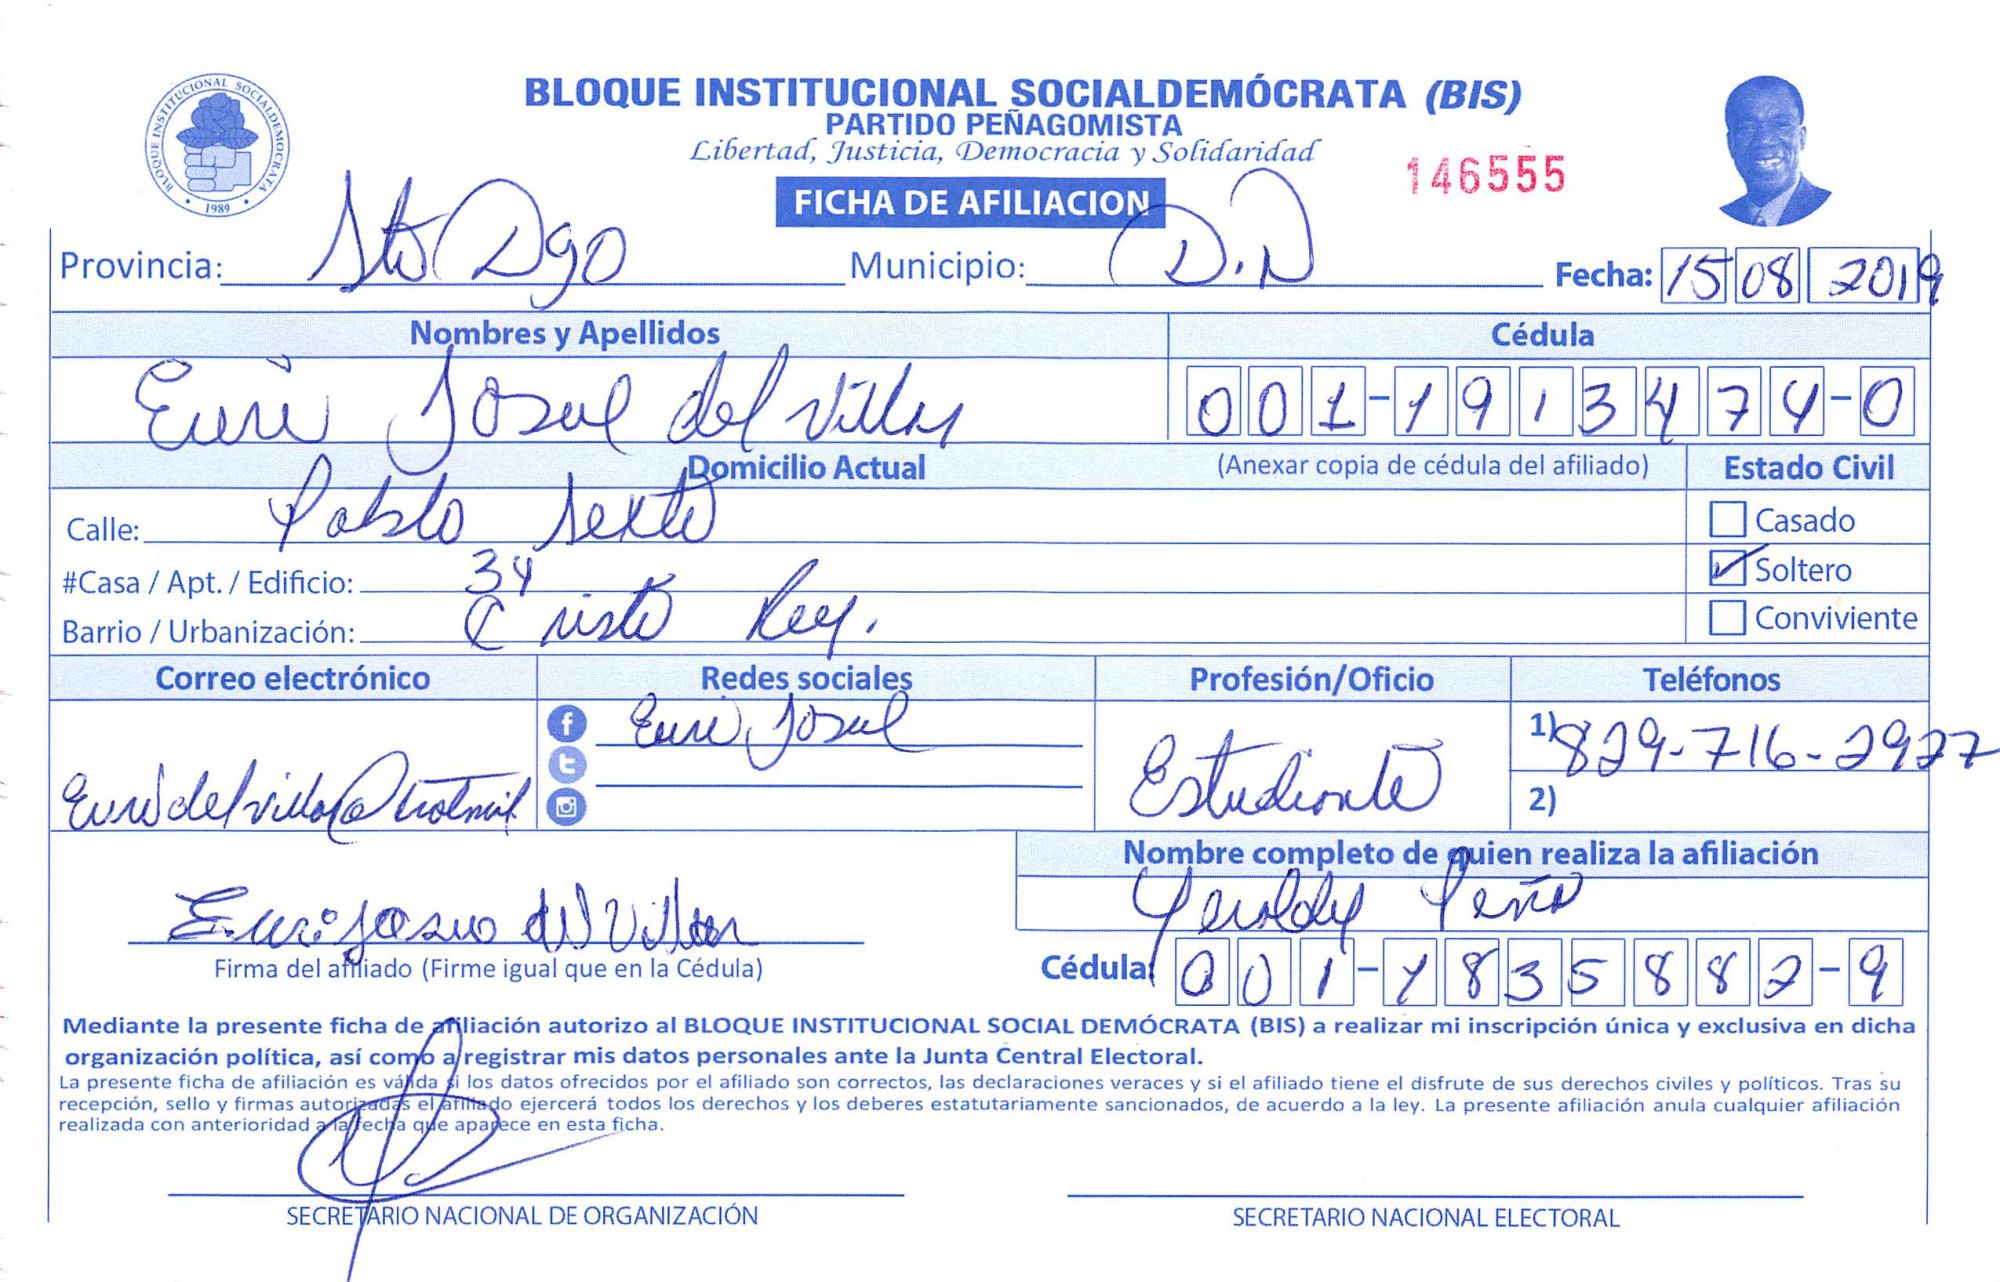 BLOQUE INSTITUCIONAL SOCIALDEMOCRATA
1989
BLOQUE INSTITUCIONAL SOCIALDEMÓCRATA (BIS)
PARTIDO PEÑAGOMISTA
Libertad, Justicia, Democracia y Solidaridad
146555
FICHA DE AFILIACION
Provincia: Sto Dgo Municipio: D.N Fecha: 15 08 2019
Nombres y Apellidos Cédula
Euri Josue del Villar 001-1913474-0
Domicilio Actual (Anexar copia de cédula del afiliado) Estado Civil
Calle: Pablo sexto Casado
#Casa / Apt. / Edificio: 34 Soltero
Barrio / Urbanización: Cristo Rey. Conviviente
Correo electrónico Redes sociales Profesión/Oficio Teléfonos
Euri Josue 1) 829-716-2927
Euridelvillar@hotmail Estudiante 2)
Nombre completo de quien realiza la afiliación
Peña
Euri josue del Villar
Firma del afiliado (Firme igual que en la Cédula) Cédula: 001-1835882-9
Mediante la presente ficha de afiliación autorizo al BLOQUE INSTITUCIONAL SOCIAL DEMÓCRATA (BIS) a realizar mi inscripción única y exclusiva en dicha
organización política, así como a registrar mis datos personales ante la Junta Central Electoral.
La presente ficha de afiliación es válida si los datos ofrecidos por el afiliado son correctos, las declaraciones veraces y si el afiliado tiene el disfrute de sus derechos civiles y políticos. Tras su
recepción, sello y firmas autorizadas el afiliado ejercerá todos los derechos y los deberes estatutariamente sancionados, de acuerdo a la ley. La presente afiliación anula cualquier afiliación
realizada con anterioridad a la fecha que aparece en esta ficha.
SECRETARIO NACIONAL DE ORGANIZACIÓN SECRETARIO NACIONAL ELECTORAL